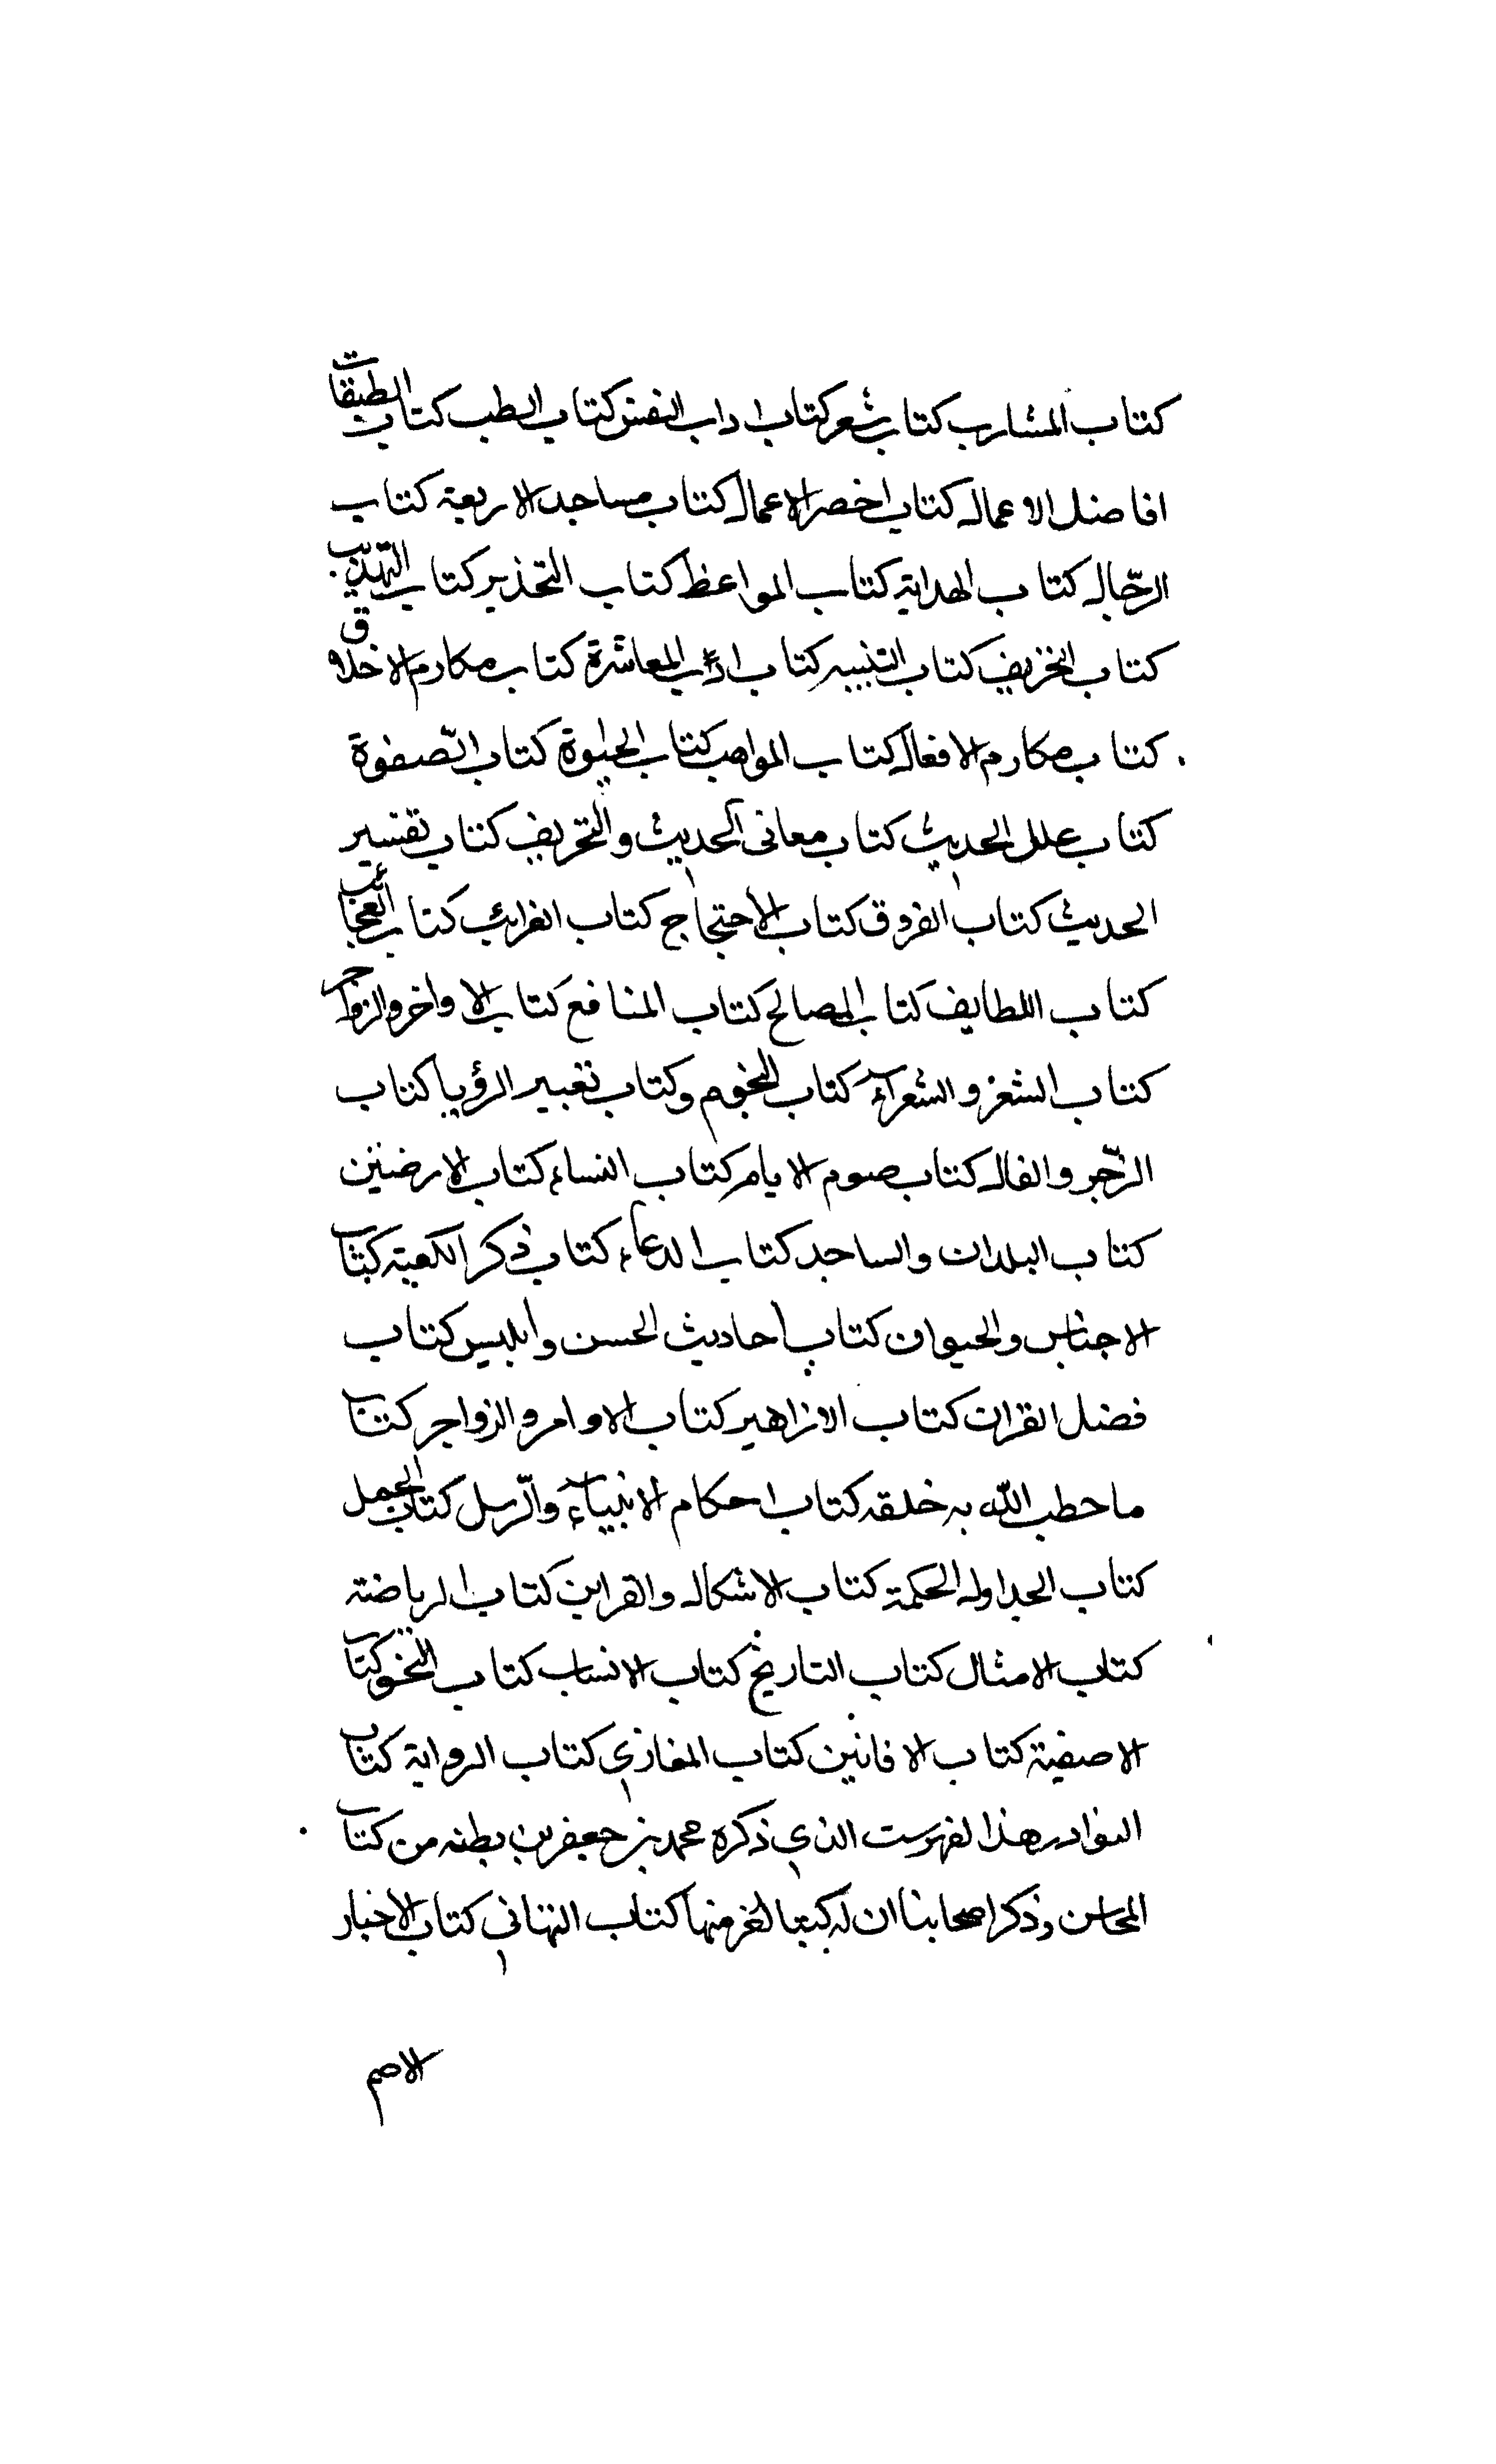 كتاب المشارب كتاب شعر كتاب اداب النفس كتاب الطب كتاب الطبقات
افاضل الاعمال كتاب اخص الاعمال كتاب مساجد الاربعة كتاب
الرجال كتاب الهداية كتاب المواعظ كتاب التحذير كتاب التهذيب
كتاب التخريف كتاب التنبيه كتاب اداب المعاشرة كتاب مكارم الاخلاق
كتاب مكارم الافعال كتاب المواهب كتاب الحيوة كتاب الصفوة
كتاب علل الحديث كتاب معانى الحديث والتحريف كتاب تفسير
الحديث كتاب الفروق كتاب الاحتجاج كتاب الغرائب كتاب العجائب
كتاب اللطايف كتاب المصالح كتاب المنافع كتاب الاواخر والزواجر
كتاب الشعر والشعرآء كتاب النجوم وكتاب تعبير الرؤيا كتاب
الزجر والفال كتاب صوم الايام كتاب النساء كتاب الارضين
كتاب البلدان والساجد كتاب الدعاء كتاب ذكر الكعبة كتاب
الاجناس والحيوان كتاب احاديث الحسن وابليس كتاب
فضل القران كتاب الازاهير كتاب الاوامر والزواجر كتاب
ما حطب الله به خلقه كتاب احكام الانبيآء والرسل كتاب الجمل
كتاب الجداول الحكمة كتاب الاشكال والقراين كتاب الرياضة
كتاب الامثال كتاب التاريخ كتاب الانساب كتاب النحو كتاب
الاصفية كتاب الافانين كتاب المغازي كتاب الرواية كتاب
النوادر هذا لفهرست الذي ذكره محمد بن جعفر بن بطنه من كتاب
المحاسن وذكر اصحابنا ان له كتبا اخر منها كتاب التهاني كتاب الاخبار
الامم